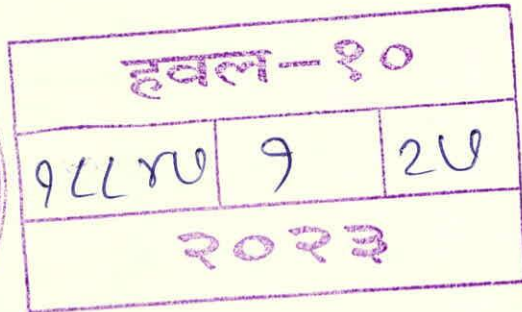 हवल-१०
१८८४७ १ २७
२०२३